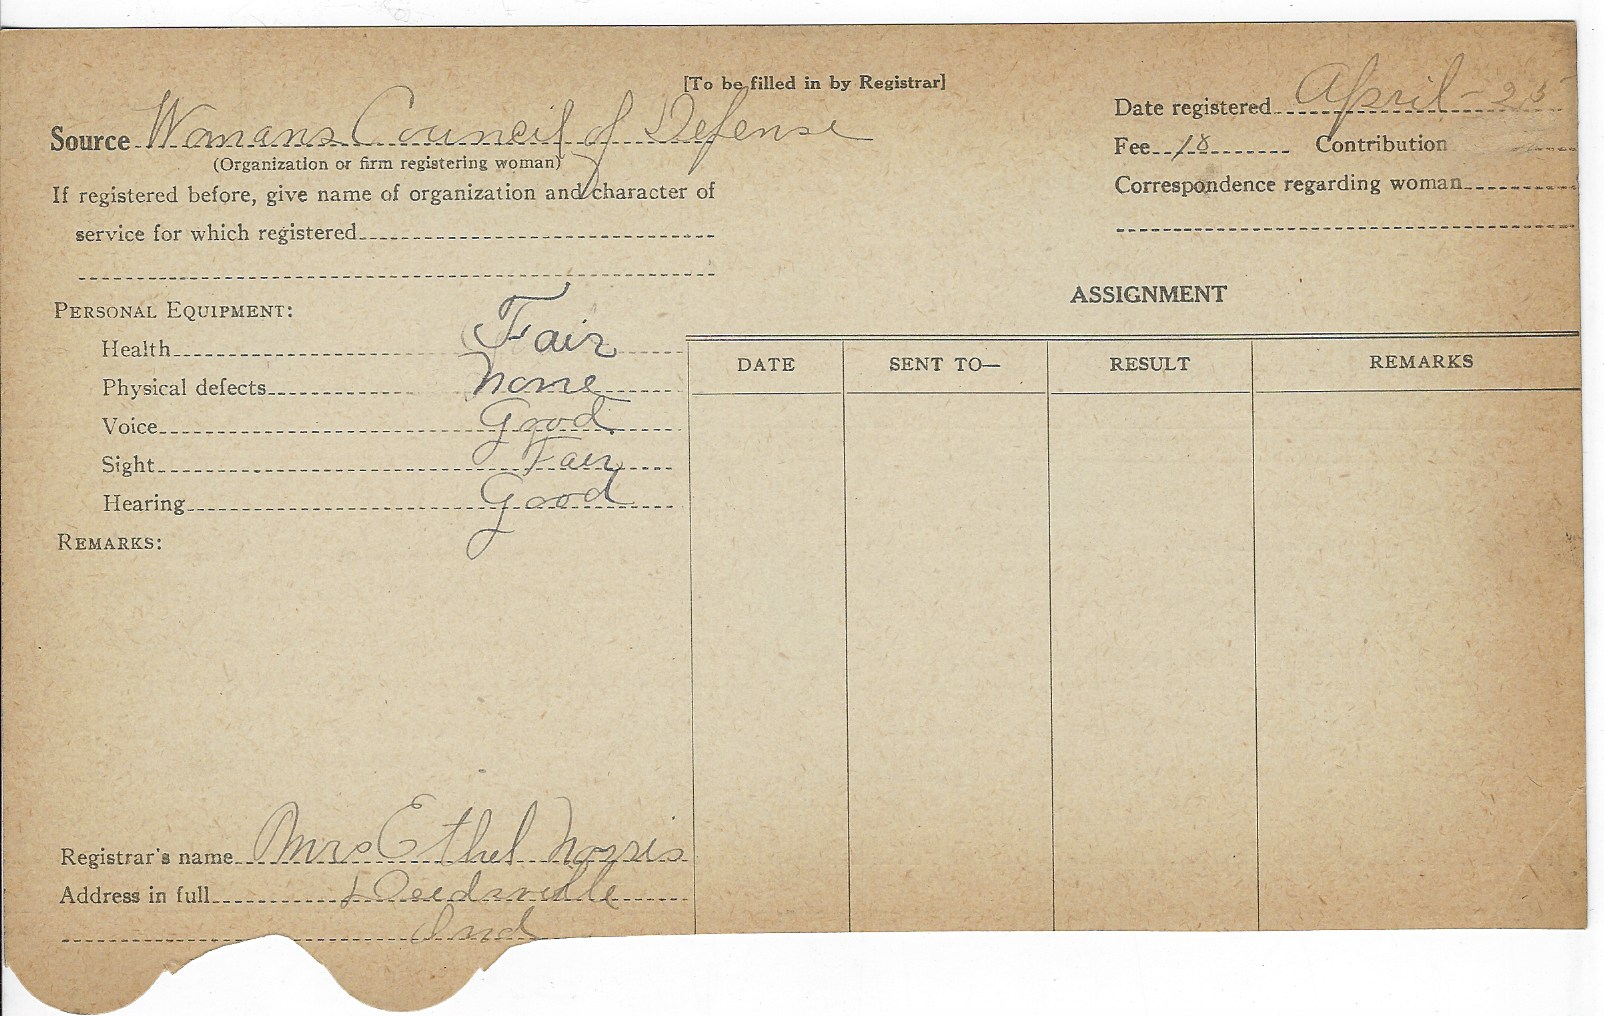 [To be filled in by Registrar]
Source Womans Council of Defense
(Organization or firm registering woman)
If registered before, give name of organization and character of
service for which registered
Date registered April - 25
Fee 18 Contribution
Correspondence regarding woman
PERSONAL EQUIPMENT:
Health Fair
Physical defects None
Voice Good
Sight Fair
Hearing Good
REMARKS:
Registrar's name Mrs Ethel Norris
Address in full Deedsville
Ind
ASSIGNMENT
DATE SENT TO— RESULT REMARKS